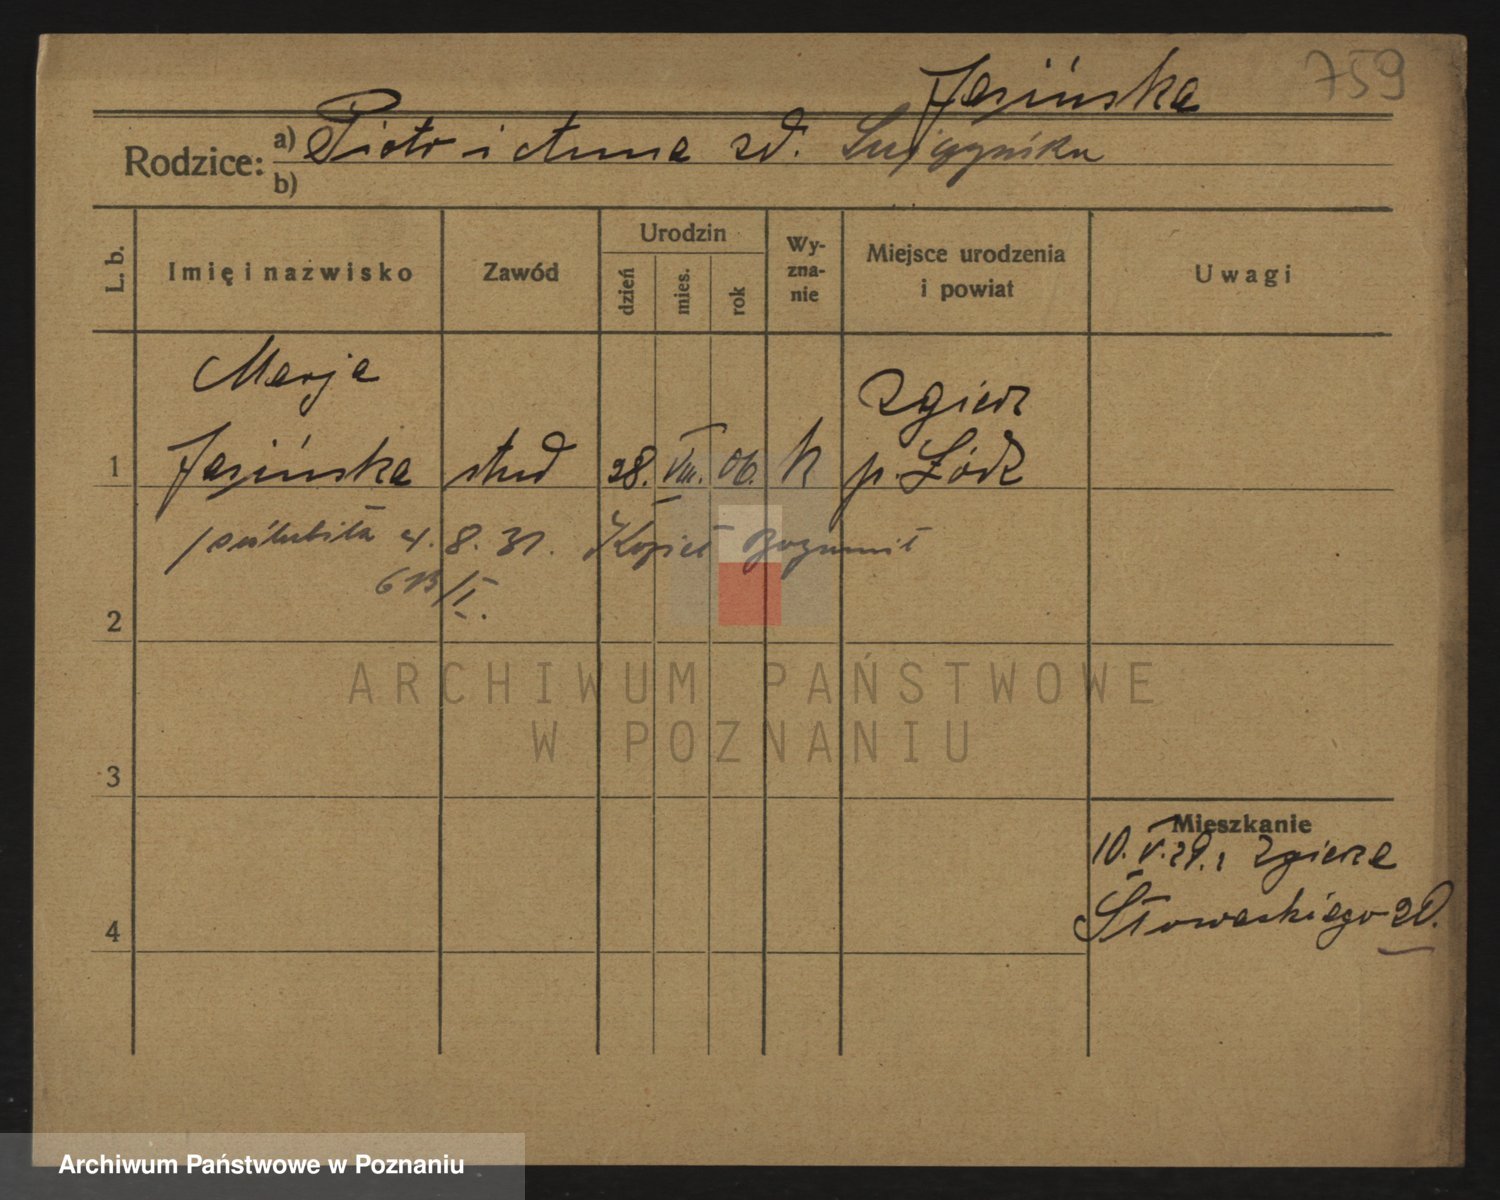 759
Jasińska
Rodzice: a) Piotr i Anna zd.
b)
L. b.
Imię i nazwisko
Zawód
Urodzin
dzień
mies.
rok
Wy-
zna-
nie
Miejsce urodzenia
i powiat
Uwagi
Marja
Zgierz
1 Jasińska stud 28. VIII. 06. k p. Łódź
poślubiła 4. 8. 31. Kopieć Bogumił
613/II.
2
ARCHIWUM PAŃSTWOWE
W POZNANIU
3
Mieszkanie
10. V. 29. z Zgierza
4
Słowackiego 20.
Archiwum Państwowe w Poznaniu